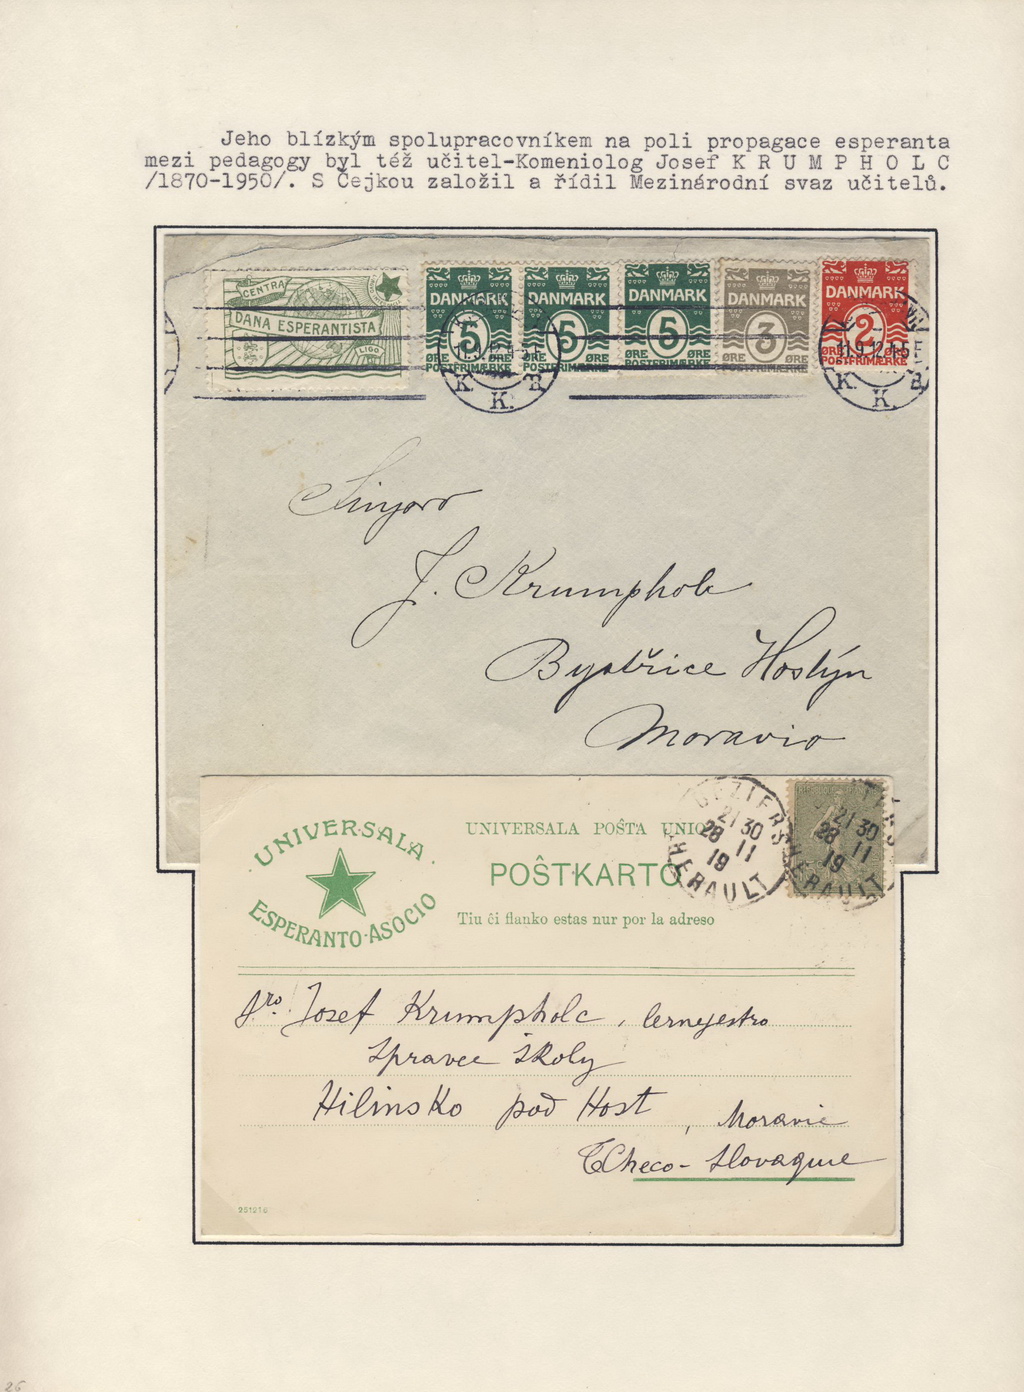 Jeho blízkým spolupracovníkem na poli propagace esperanta
mezi pedagogy byl též učitel-Komeniolog Josef K R U M P H O L C
/1870-1950/. S Čejkou založil a řídil Mezinárodní svaz učitelů.
CENTRA
DANA ESPERANTISTA
LIGO
DANMARK
5
ØRE ØRE
POSTFRIMÆRKE
DANMARK
5
ØRE ØRE
POSTFRIMÆRKE
DANMARK
5
ØRE ØRE
POSTFRIMÆRKE
DANMARK
3
ØRE ØRE
POSTFRIMÆRKE
DANMARK
2
ØRE ØRE
POSTFRIMÆRKE
11.9.12.4-5E
K. K. B.
11.9.12.4-5E
K. K. B.
Sinjoro
J. Krumpholc
Bystřice Hostýn
Moravio
UNIVERSALA
ESPERANTO-ASOCIO
UNIVERSALA POŜTA UNIO
POŜTKARTO
Tiu ĉi flanko estas nur por la adreso
BEZIERS
21 30
28 11
19
HERAULT
21 30
28 11
19
HERAULT
Sro. Josef Krumpholc, lernejestro
Spravce Školy
Hilinsko pod Host, Moravie
TChéco-Slovaquie
251216
26